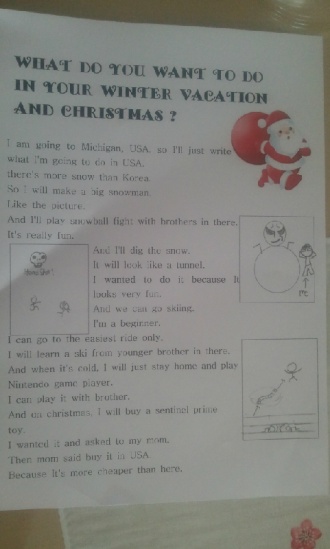 WHAT DO YOU WANT TO DO
IN YOUR WINTER VACATION
AND CHRISTMAS ?
I am going to Michigan, USA. so I'll just write
what i'm going to do in USA.
there's more snow than Korea.
So I will make a big snowman.
Like the picture.
And I'll play snowball fight with brothers in there.
It's really fun.
And I'll dig the snow.
It will look like a tunnel.
I wanted to do it because it
looks very fun.
And we can go skiing.
I'm a beginner.
I can go to the easiest ride only.
I will learn a ski from younger brother in there.
And when it's cold, I will just stay home and play
Nintendo game player.
I can play it with brother.
And on christmas, I will buy a sentinel prime
toy.
I wanted it and asked to my mom.
Then mom said buy it in USA.
Because It's more cheaper than here.
ME